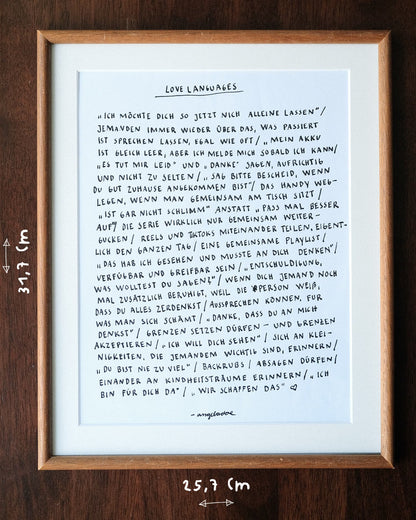 LOVE LANGUAGES
"ICH MÖCHTE DICH SO JETZT NICH ALLEINE LASSEN"/
JEMANDEN IMMER WIEDER ÜBER DAS, WAS PASSIERT
IST SPRECHEN LASSEN, EGAL WIE OFT/ „MEIN AKKU
IST GLEICH LEER, ABER ICH MELDE MICH SOBALD ICH KANN/
„ES TUT MIR LEID" UND „DANKE" SAGEN, AUFRICHTIG
UND NICHT ZU SELTEN/ „SAG BITTE BESCHEID, WENN
DU GUT ZUHAUSE ANGEKOMMEN BIST"/ DAS HANDY WEG-
LEGEN, WENN MAN GEMEINSAM AM TISCH SITZT/
„IST GAR NICHT SCHLIMM" ANSTATT „PASS MAL BESSER
AUF"/ DIE SERIE WIRKLICH NUR GEMEINSAM WEITER-
GUCKEN/ REELS UND TIKTOKS MITEINANDER TEILEN, EIGENT-
LICH DEN GANZEN TAG/ EINE GEMEINSAME PLAYLIST/
„DAS HAB ICH GESEHEN UND MUSSTE AN DICH DENKEN"/
VERFÜGBAR UND GREIFBAR SEIN/ „ENTSCHULDIGUNG,
WAS WOLLTEST DU SAGEN?"/ WENN DICH JEMAND NOCH
MAL ZUSÄTZLICH BERUHIGT, WEIL DIE PERSON WEIß,
DASS DU ALLES ZERDENKST/ AUSSPRECHEN KÖNNEN, FÜR
WAS MAN SICH SCHÄMT/ „DANKE, DASS DU AN MICH
DENKST"/ GRENZEN SETZEN DÜRFEN – UND GRENZEN
AKZEPTIEREN/ „ICH WILL DICH SEHEN"/ SICH AN KLEI-
NIGKEITEN, DIE JEMANDEM WICHTIG SIND, ERINNERN/
„DU BIST NIE ZU VIEL"/ BACKRUBS/ ABSAGEN DÜRFEN/
EINANDER AN KINDHEITSTRÄUME ERINNERN/ „ICH
BIN FÜR DICH DA"/ „WIR SCHAFFEN DAS" ♡
- angeladoe
31,7 cm
25,7 cm